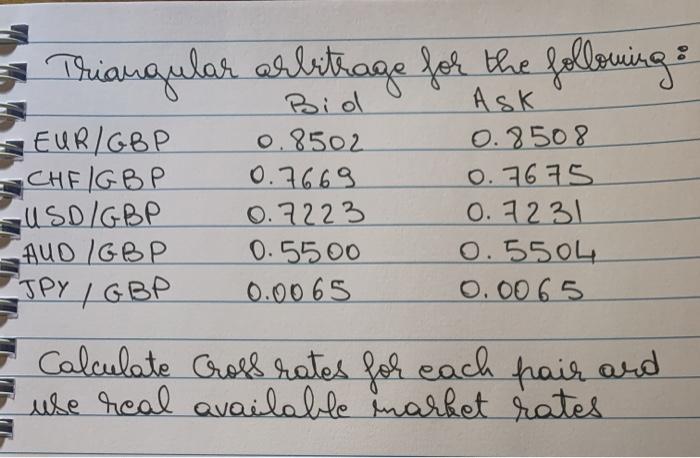 Triangular arbitrage for the following:
Bid ASK
EUR/GBP 0.8502 0.8508
CHF/GBP 0.7669 0.7675
USD/GBP 0.7223 0.7231
AUD/GBP 0.5500 0.5504
JPY/GBP 0.0065 0.0065
Calculate Cross rates for each pair and
use real available market rates